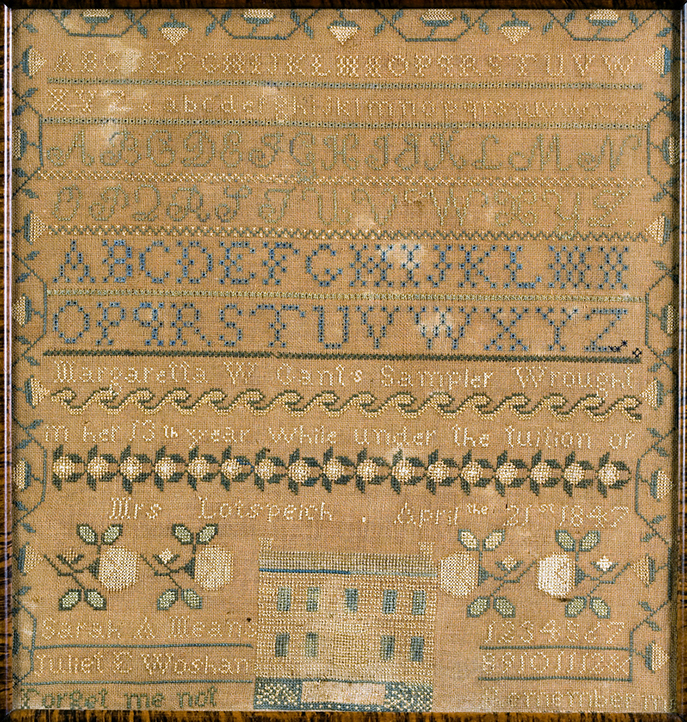 ABCDEFGHIJKLMNOPQRSTUVW
XYZ & abcdefghijklmnopqrstuvwxyz
ABCDEFGHIJKLMN
OPQRSTUVWXYZ
ABCDEFGHIJKLMN
OPQRSTUVWXYZ
Margaretta W Gants Sampler Wrought
in her 13th year while under the tuition of
Mrs Lotspeich . April the 21st 1847
Sarah A Means
1234567
E
89101112 &
Forget me not
Remember m